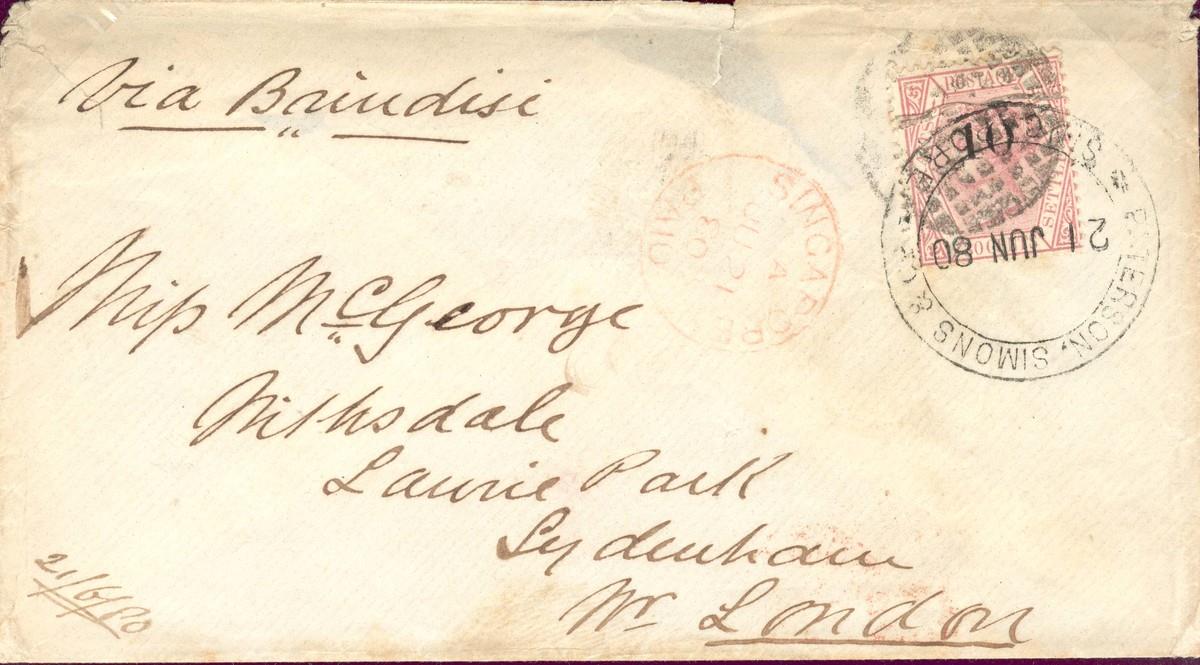 Via Brindisi
Miss McGeorge
Nithsdale
Laurie Park
Sydenham
Nr London
21/6/80
SINGAPORE
A
JU 21
80
PAID
POSTAGE
10
SETTL
PATERSON, SIMONS & Co
21 JUN 80